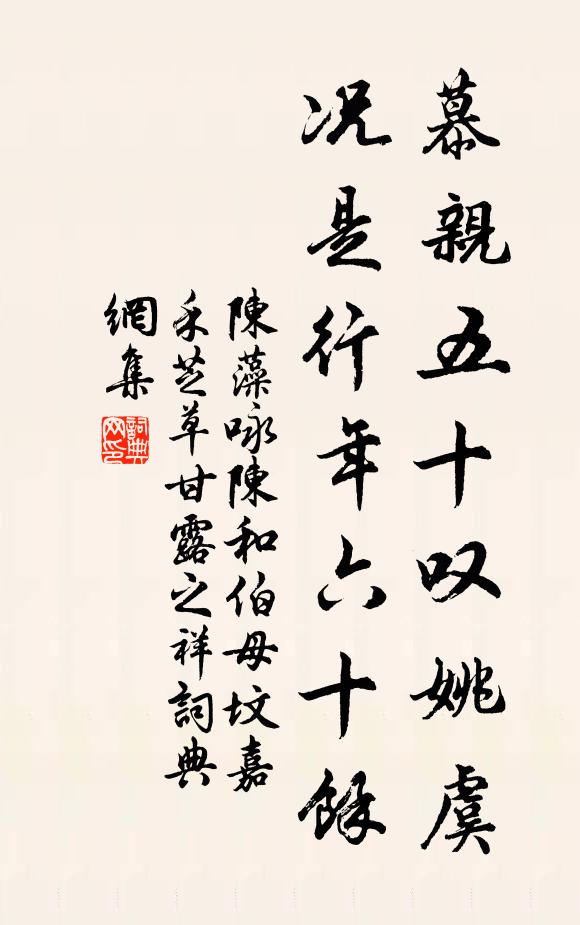 慕親五十叹姚虞
况是行年六十餘
陳藻咏陳和伯母坟嘉
禾芝草甘露之祥詞典
網集
詞典
网印